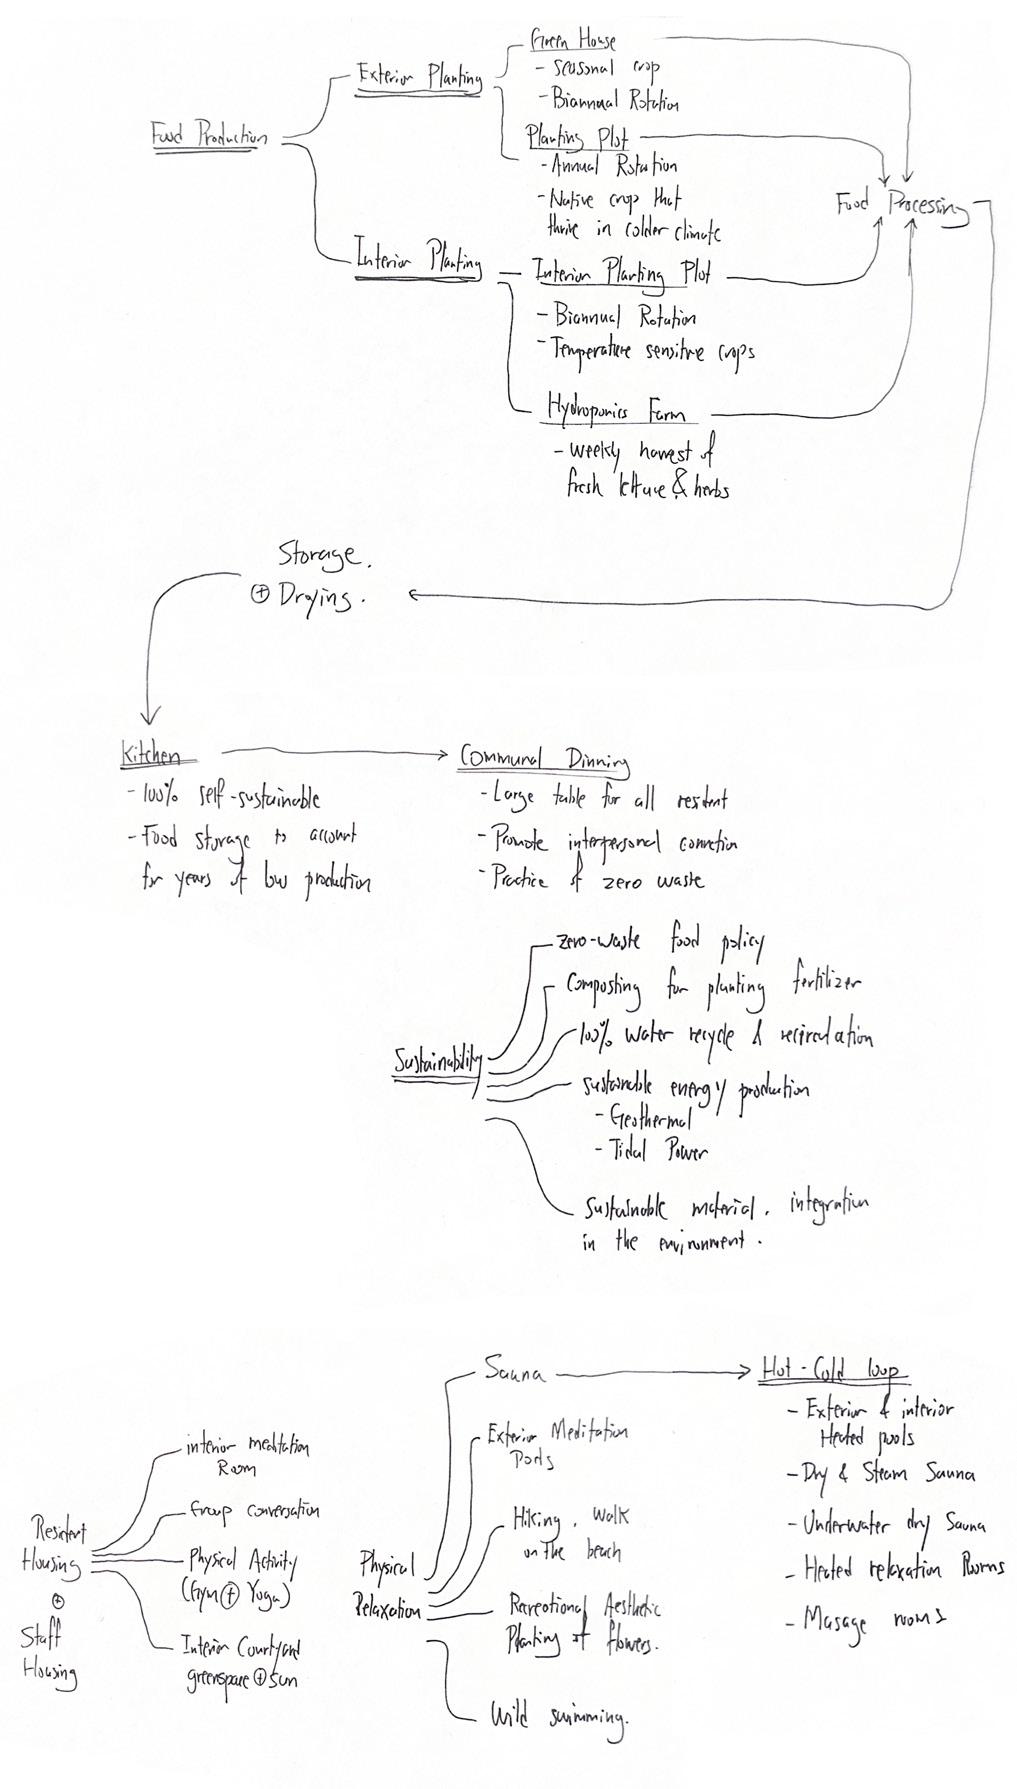 Food Production
Exterior Planting
Green House
- Seasonal crop
- Biannual Rotation
Planting Plot
- Annual Rotation
- Native crop that
thrive in colder climate
Food Processing
Interior Planting
Interior Planting Plot
- Biannual Rotation
- Temperature sensitive crops
Hydroponics Farm
- weekly harvest of
fresh lettuce & herbs
Storage.
⊕ Drying.
Kitchen
- 100% self-sustainable
- Food storage to account
for years of low production
Communal Dinning
- Large table for all resident
- Promote interpersonal connection
- Practice of zero waste
Sustainability
zero-waste food policy
Composting for planting fertilizer
100% water recycle & recirculation
Sustainable energy production
- Geothermal
- Tidal Power
Sustainable material. integration
in the environment.
Resident
Housing
⊕
Staff
Housing
interior meditation
Room
Group conversation
Physical Activity
(Gym ⊕ Yoga)
Interior Courtyard
greenspace ⊕ sun
Physical
Relaxation
Sauna
Exterior Meditation
Pods
Hiking. Walk
on the beach
Recreational Aesthetic
Planting of flowers.
Wild swimming.
Hot-Cold loop
- Exterior & interior
Heated pools
- Dry & Steam Sauna
- Underwater dry Sauna
- Heated relaxation Rooms
- Masage rooms